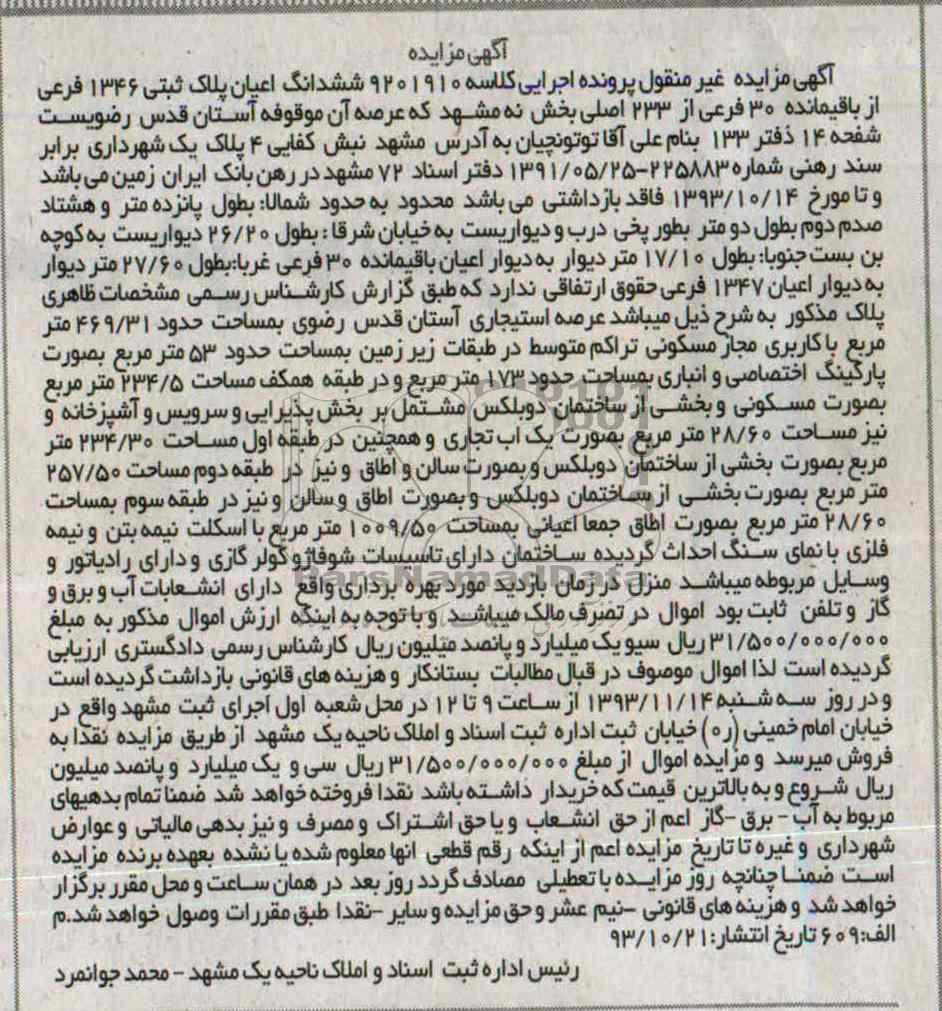 آگهی مزایده
آگهی مزایده غیر منقول پرونده اجرایی کلاسه ۹۲۰۱۹۱۰ ششدانگ اعیان پلاک ثبتی ۱۳۴۶ فرعی
از باقیمانده ۳۰ فرعی از ۲۳۳ اصلی بخش نه مشهد که عرصه آن موقوفه آستان قدس رضویست
شفحه ۱۴ دفتر ۱۳۳ بنام علی آقا توتونچیان به آدرس مشهد نبش کفایی ۴ پلاک یک شهرداری برابر
سند رهنی شماره ۲۲۵۸۸۳-۱۳۹۱/۰۵/۲۵ دفتر اسناد ۷۲ مشهد در رهن بانک ایران زمین می باشد
و تا مورخ ۱۳۹۳/۱۰/۱۴ فاقد بازداشتی می باشد محدود به حدود شمالا: بطول پانزده متر و هشتاد
صدم دوم بطول دو متر بطور پخی درب و دیواریست به خیابان شرقا : بطول ۲۶/۲۰ دیواریست به کوچه
بن بست جنوبا: بطول ۱۷/۱۰ متر دیوار به دیوار اعیان باقیمانده ۳۰ فرعی غربا:بطول ۲۷/۶۰ متر دیوار
به دیوار اعیان ۱۳۴۷ فرعی حقوق ارتفاقی ندارد که طبق گزارش کارشناس رسمی مشخصات ظاهری
پلاک مذکور به شرح ذیل میباشد عرصه استیجاری آستان قدس رضوی بمساحت حدود ۴۶۹/۳۱ متر
مربع با کاربری مجاز مسکونی تراکم متوسط در طبقات زیر زمین بمساحت حدود ۵۳ متر مربع بصورت
پارکینگ اختصاصی و انباری بمساحت حدود ۱۷۳ متر مربع و در طبقه همکف مساحت ۲۳۴/۵ متر مربع
بصورت مسکونی و بخشی از ساختمان دوبلکس مشتمل بر بخش پذیرایی و سرویس و آشپزخانه و
نیز مساحت ۲۸/۶۰ متر مربع بصورت یک اب تجاری و همچنین در طبقه اول مساحت ۲۳۴/۳۰ متر
مربع بصورت بخشی از ساختمان دوبلکس و بصورت سالن و اطاق و نیز در طبقه دوم مساحت ۲۵۷/۵۰
متر مربع بصورت بخشی از ساختمان دوبلکس و بصورت اطاق و سالن و نیز در طبقه سوم بمساحت
۲۸/۶۰ متر مربع بصورت اطاق جمعا اعیانی بمساحت ۱۰۰۹/۵۰ متر مربع با اسکلت نیمه بتن و نیمه
فلزی با نمای سنگ احداث گردیده ساختمان دارای تاسیسات شوفاژو کولر گازی و دارای رادیاتور و
وسایل مربوطه میباشد منزل در زمان بازدید مورد بهره برداری واقع دارای انشعابات آب و برق و
گاز و تلفن ثابت بود اموال در تصرف مالک میباشد و با توجه به اینکه ارزش اموال مذکور به مبلغ
۳۱/۵۰۰/۰۰۰/۰۰۰ ریال سیو یک میلیارد و پانصد میلیون ریال کارشناس رسمی دادگستری ارزیابی
گردیده است لذا اموال موصوف در قبال مطالبات بستانکار و هزینه های قانونی بازداشت گردیده است
و در روز سه شنبه ۱۳۹۳/۱۱/۱۴ از ساعت ۹ تا ۱۲ در محل شعبه اول اجرای ثبت مشهد واقع در
خیابان امام خمینی (ره) خیابان ثبت اداره ثبت اسناد و املاک ناحیه یک مشهد از طریق مزایده نقدا به
فروش میرسد و مزایده اموال از مبلغ ۳۱/۵۰۰/۰۰۰/۰۰۰ ریال سی و یک میلیارد و پانصد میلیون
ریال شروع و به بالاترین قیمت که خریدار داشته باشد نقدا فروخته خواهد شد ضمنا تمام بدهیهای
مربوط به آب - برق -گاز اعم از حق انشعاب و یا حق اشتراک و مصرف و نیز بدهی مالیاتی و عوارض
شهرداری و غیره تا تاریخ مزایده اعم از اینکه رقم قطعی انها معلوم شده یا نشده بعهده برنده مزایده
است ضمنا چنانچه روز مزایده با تعطیلی مصادف گردد روز بعد در همان ساعت و محل مقرر برگزار
خواهد شد و هزینه های قانونی -نیم عشر و حق مزایده و سایر -نقدا طبق مقررات وصول خواهد شد.م
الف:۶۰۹ تاریخ انتشار:۹۳/۱۰/۲۱
رئیس اداره ثبت اسناد و املاک ناحیه یک مشهد - محمد جوانمرد
ParsNamadData